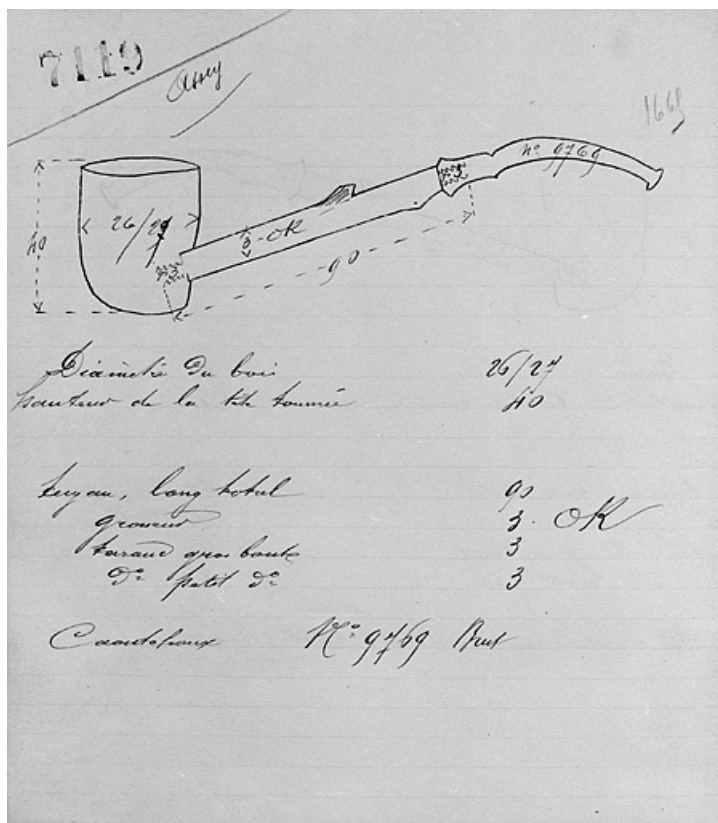 7119
Assy
1665
No 9769
26/27
40
3 - OK
90
Diamètre du bois 26/27
hauteur de la tête tournée 40
tuyau, long total 90
grosseur 3. OK
taraud gros bout 3
Do petit Do 3
Caoutchouc No 9769 Brut